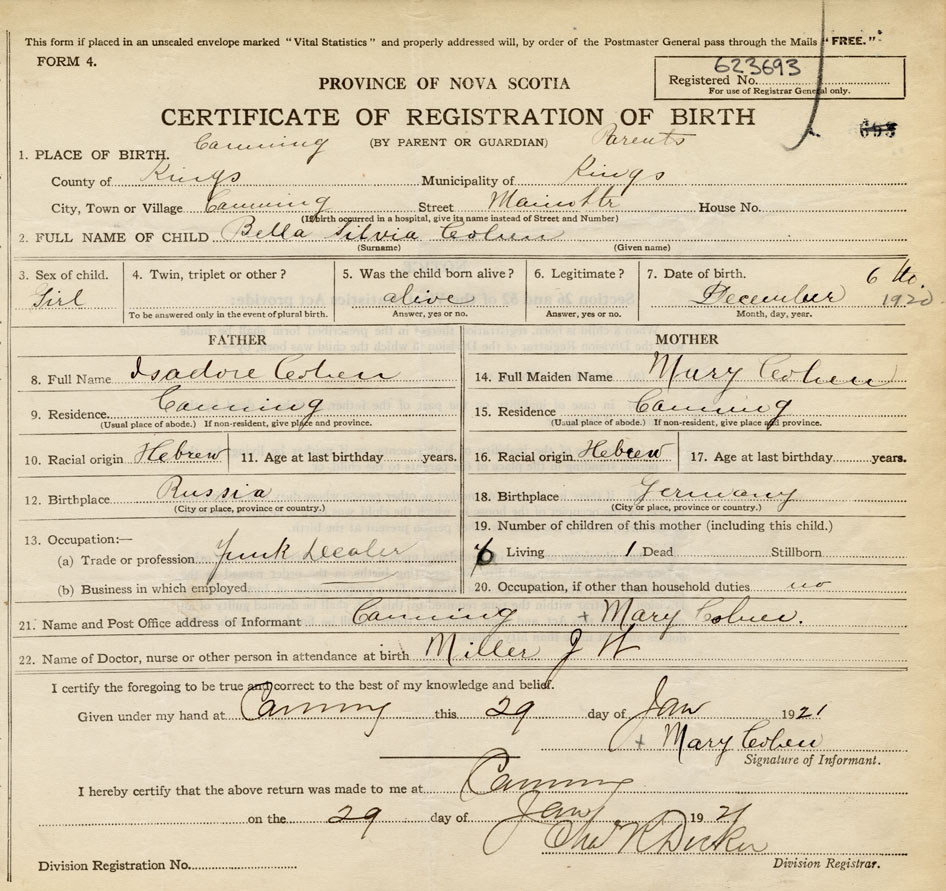 This form if placed in an unsealed envelope marked "Vital Statistics" and properly addressed will, by order of the Postmaster General pass through the Mails "FREE."
FORM 4.
623693
Registered No.
For use of Registrar General only.
PROVINCE OF NOVA SCOTIA
CERTIFICATE OF REGISTRATION OF BIRTH
693
Canning (BY PARENT OR GUARDIAN) Parents
1. PLACE OF BIRTH.
County of Kings Municipality of Kings
City, Town or Village Canning Street Main Str House No.
(If birth occurred in a hospital, give its name instead of Street and Number)
2. FULL NAME OF CHILD Bella Silvia Cohen
(Surname) (Given name)
3. Sex of child. 4. Twin, triplet or other? 5. Was the child born alive? 6. Legitimate? 7. Date of birth. 6 th.
Girl alive December 1920
To be answered only in the event of plural birth. Answer, yes or no. Answer, yes or no. Month, day, year.
FATHER MOTHER
8. Full Name Isadore Cohen 14. Full Maiden Name Mary Cohen
9. Residence. Canning 15. Residence. Canning
(Usual place of abode.) If non-resident, give place and province. (Usual place of abode.) If non-resident, give place and province.
10. Racial origin Hebrew 11. Age at last birthday years. 16. Racial origin Hebrew 17. Age at last birthday years.
12. Birthplace Russia 18. Birthplace Germany
(City or place, province or country.) (City or place, province or country.)
19. Number of children of this mother (including this child.)
13. Occupation:—
(a) Trade or profession Junk Dealer 6 Living 1 Dead Stillborn
(b) Business in which employed 20. Occupation, if other than household duties. no
21. Name and Post Office address of Informant Canning + Mary Cohen.
22. Name of Doctor, nurse or other person in attendance at birth Miller J W
I certify the foregoing to be true and correct to the best of my knowledge and belief.
Given under my hand at Canning this 29 day of Jan 1921
+ Mary Cohen
Signature of Informant.
I hereby certify that the above return was made to me at Canning
on the 29 day of Jan 1921
Division Registration No. Division Registrar.